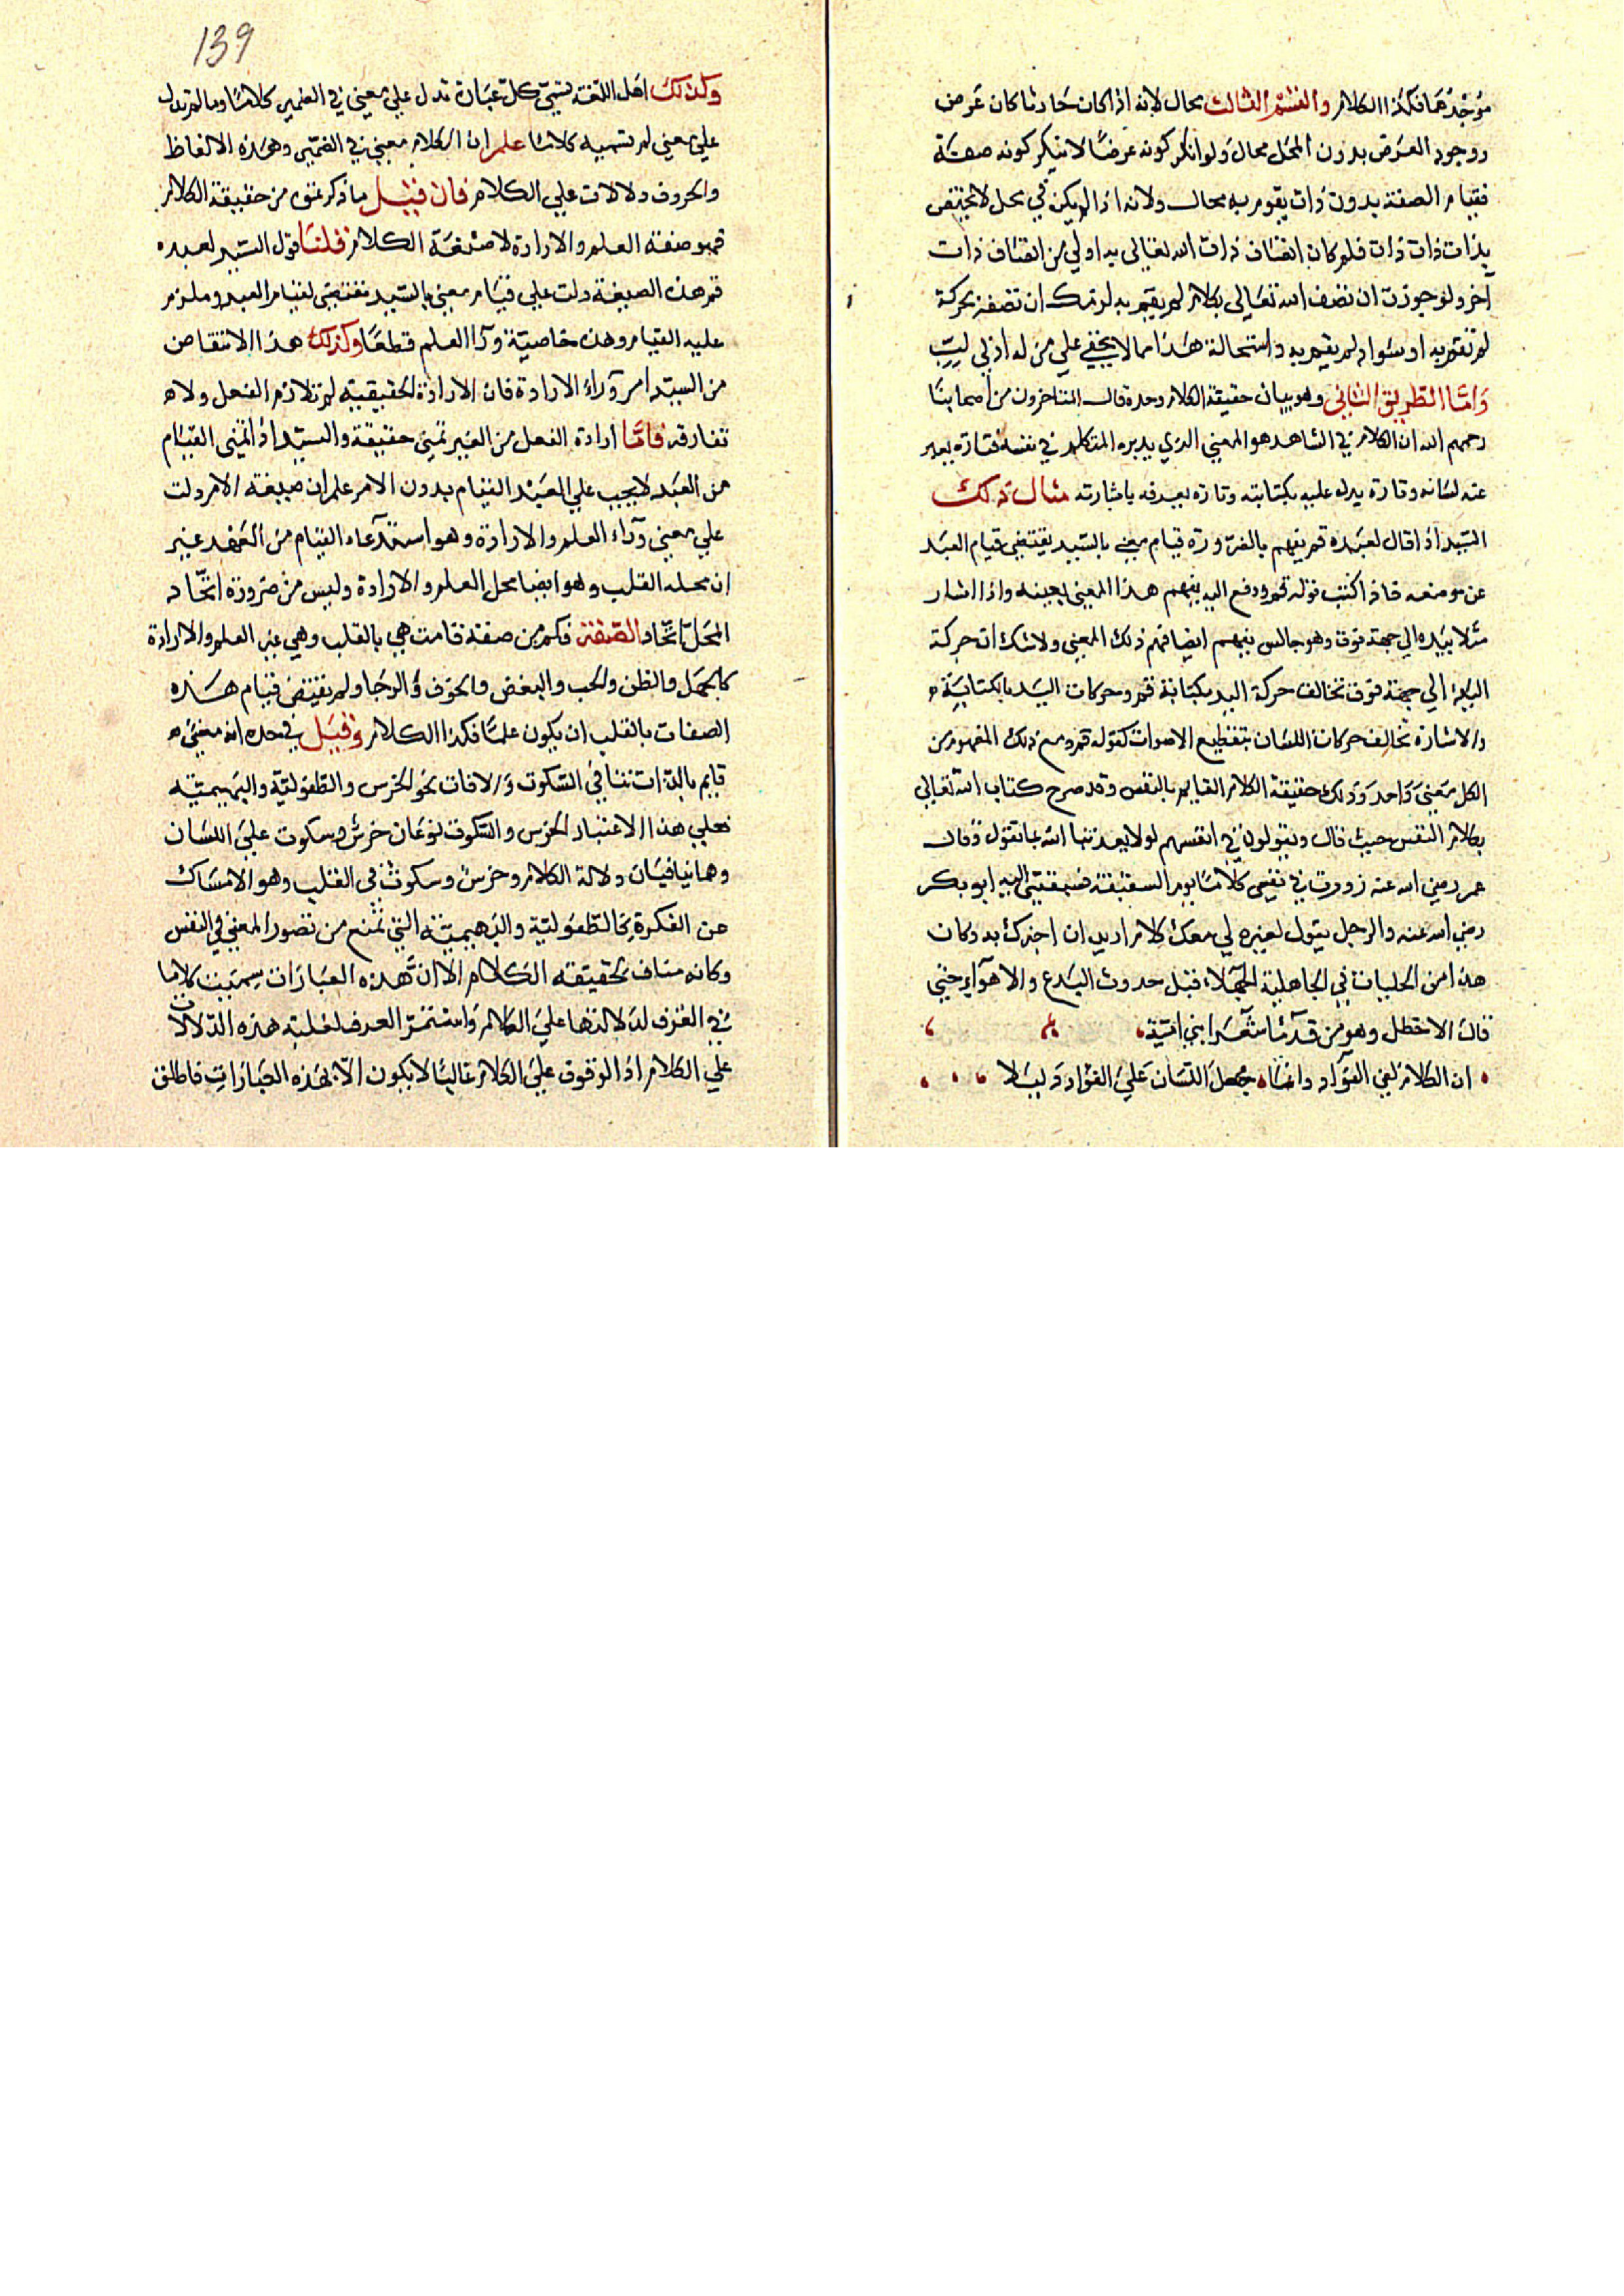 موجدهما فكذا الكلام والقسم الثالث محال لانه اذا كان حادثا كان عرض
ووجود العرض بدون المحل محال ولو انكر كونه عرضا لا ينكر كونه صفة
فقيام الصفة بدون ذات يقوم به محال ولانه اذا لم يكن في محل لا يختص
بذات ذات ذات فلم كان اتصاف ذات الله تعالى به اولى من اتصاف ذات
آخر ولو جوزت ان نصف الله تعالى بكلام لم يقم به لزمك ان تصفه بحركة
لم تقم به او سواد لم يقم به واستحالة هذا مما لا يخفى على من له ادنى لب
واما الطريق الثاني وهو بيان حقيقة الكلام وحده قال المتاخرون من اصحابنا
رحمهم الله ان الكلام في الشاهد هو المعنى الذي يدبره المتكلم في نفسه فتارة يعبر
عنه لسانه وتارة يدل عليه بكتابته وتارة يعرفه باشارته مثال ذلك
السيد اذا قال لعبده قم يفهم بالضرورة قيام معنى بالسيد يقتضي قيام العبد
عن موضعه فاذا كتب قوله قم ودفع اليه يفهم هذا المعنى بعينه واذا اشار
مثلا بيده الى جهة فوق وهو جالس يفهم ايضا فهم ذلك المعنى ولا شك ان حركة
اليد الى جهة فوق تخالف حركة اليد بكتابة قم وحركات اليد بالكتابة
والاشارة تخالف حركات اللسان بتقطيع الاصوات كقوله قم ومع ذلك المفهوم من
الكل معنى واحد وذلك حقيقة الكلام القايم بالنفس وقد صرح كتاب الله تعالى
بكلام النفس حيث قال ويقولون في انفسهم لولا يعذبنا الله بما نقول وقال
عمر رضي الله عنه زورت في نفسي كلاما يوم السقيفة فسبقني اليه ابو بكر
رضي الله عنه والرجل يقول لغيره لي معك كلام اريد ان اخبرك به وكان
هذا من الجليات في الجاهلية الجهلاء قبل حدوث البدع والاهواء حتى
قال الاخطل وهو من قدماء شعرا بني امية
ان الكلام لفي الفؤاد وانما جعل اللسان على الفؤاد دليلا
139
وكذلك اهل اللغة تسمي كل عبارة تدل على معنى في الضمير كلاما وما لم تدل
على معنى لم تسميه كلاما علم ان الكلام معنى في الضمير وهذه الالفاظ
والحروف دلالات على الكلام فان قيل ما ذكرتموه من حقيقة الكلام
فهو صفة العلم والارادة لا صفة الكلام قلنا قول السيد لعبده
قم هذه الصيغة دلت على قيام معنى بالسيد تقتضي لقيام العبد وملزم
عليه القيام وهذه خاصية ورآ العلم قطعا وكذلك هذا الاقتضا من
من السيد امر وراء الارادة فان الارادة الحقيقية لم تلازم الفعل ولا
تفارقه فاما ارادة الفعل من الغير تمني حقيقة والسيد اذا تمنى القيام
من العبد لا يجب على العبد القيام بدون الامر علم ان صيغة الامر دلت
على معنى وراء العلم والارادة وهو استدعاء القيام من العبد غير
ان محله القلب وهو ايضا محل العلم والارادة وليس من ضرورة اتحاد
المحل اتحاد الصفة فكم من صفة قامت هي بالقلب وهي غير العلم والارادة
كالجهل والظن والحب والبغض والخوف والرجا ولم يقتض قيام هذه
الصفات بالقلب ان يكون علما فكذا الكلام وقيل في حده انه معنى
قايم بالذات تنافي السكوت والافات نحو الخرس والطفولية والبهيمية
فعلى هذا الاعتبار الخرس والسكوت نوعان خرس وسكوت على اللسان
وهما ينافيان دلالة الكلام وخرس وسكوت في القلب وهو الامساك
عن الفكرة كالطفولية والبهيمية التي تمنع من تصور المعنى في النفس
وكانه مناف لحقيقة الكلام الا ان هذه العبارات سميت كلاما
في العرف لدلالتها على الكلام واستمر العرف لغلبة هذه الدلالات
على الكلام اذ الوقوف على الكلام غالبا لا يكون الا بهذه العبارات فاطلق